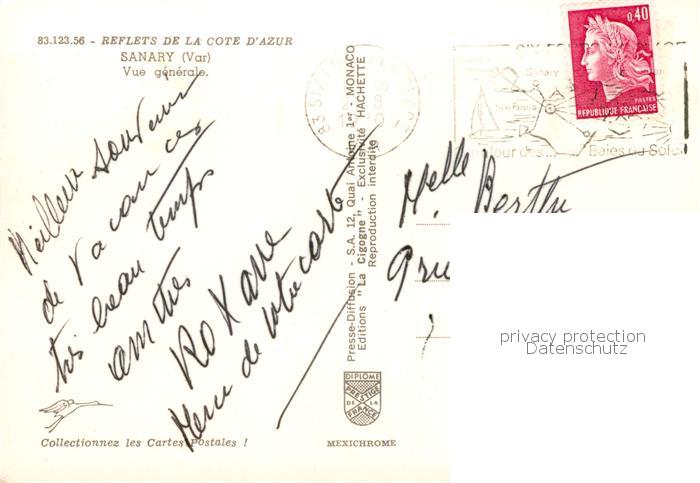 83.123.56 - REFLETS DE LA COTE D'AZUR
SANARY (Var)
Vue générale.
Meilleur souvenir
de vacances
très beau temps
amitiés
Roxane
Merci de votre carte
Collectionnez les Cartes Postales !
Presse-Diffusion - S.A. 12, Quai Antoine 1er MONACO
Editions "La Cigogne" - Exclusivité HACHETTE
Reproduction interdite
DIPLOME
PRESTIGE
DE LA
FRANCE
MEXICHROME
0,40
POSTES
RÉPUBLIQUE FRANÇAISE
Sanary
Six-Fours
Baies du Soleil
Melle Berthe
privacy protection
Datenschutz